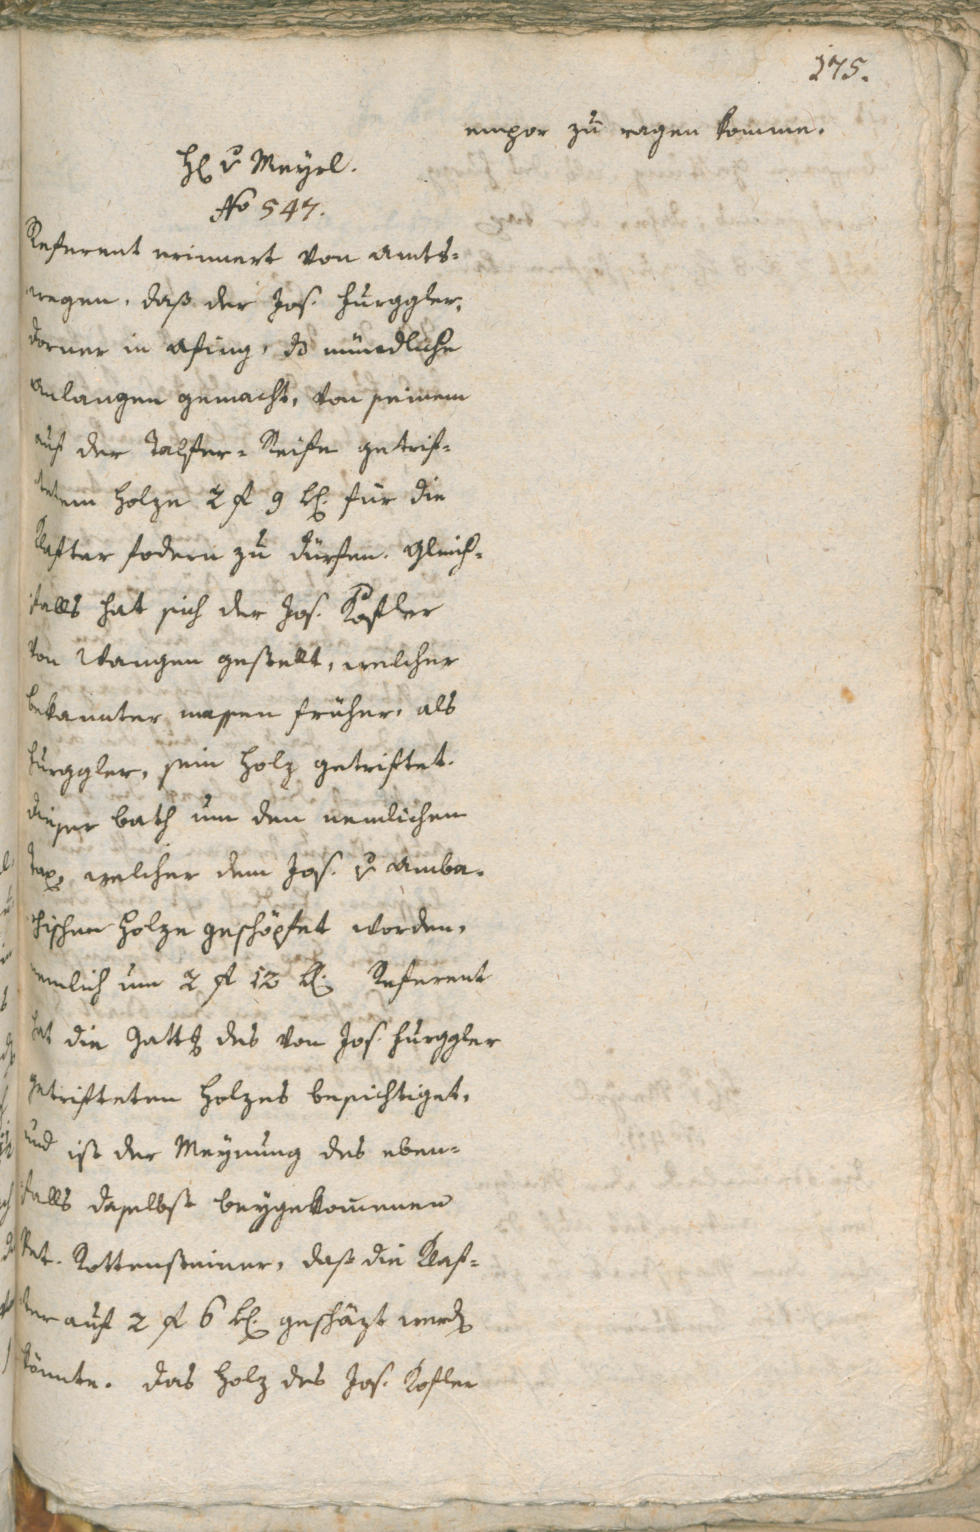 175.
empor zu ragen komme.
H. v Meyrl.
No 547.
Referent erinnert von amts-
wegen, daß der Jos. Furggler,
Dorner in Afing, ds mündliche
Anlangen gemacht, von seinem
auf der Talfer-Reife getrif-
tetem Holze 2 f 9 kr. für die
Klafter fodern zu dürfen. Gleich-
falls hat sich der Jos. Kofler
von Wangen gestellt, welcher
bekannter massen früher, als
Furggler, sein Holz getriftet.
Dieser bath um den nemlichen
Tax, welcher dem Jos. v Amba-
chischen Holze geschöpfet worden,
nemlich um 2 f 12 kr. Referent
hat die Gattg des von Jos. Furggler
getrifteten Holzes besichtiget,
und ist der Meynung des eben-
falls daselbst beygekommenen
Rottensteiner, daß die Klaf-
ter auf 2 f 6 kr. geschäzt werdn
könnte. Das Holz des Jos. Kofler